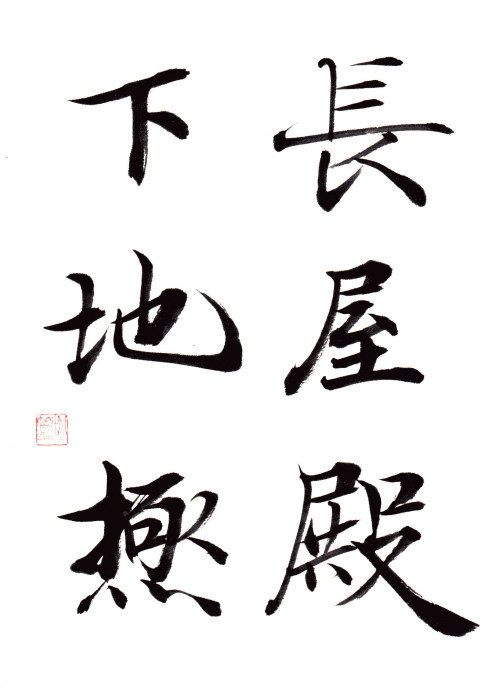 長屋殿
下地極